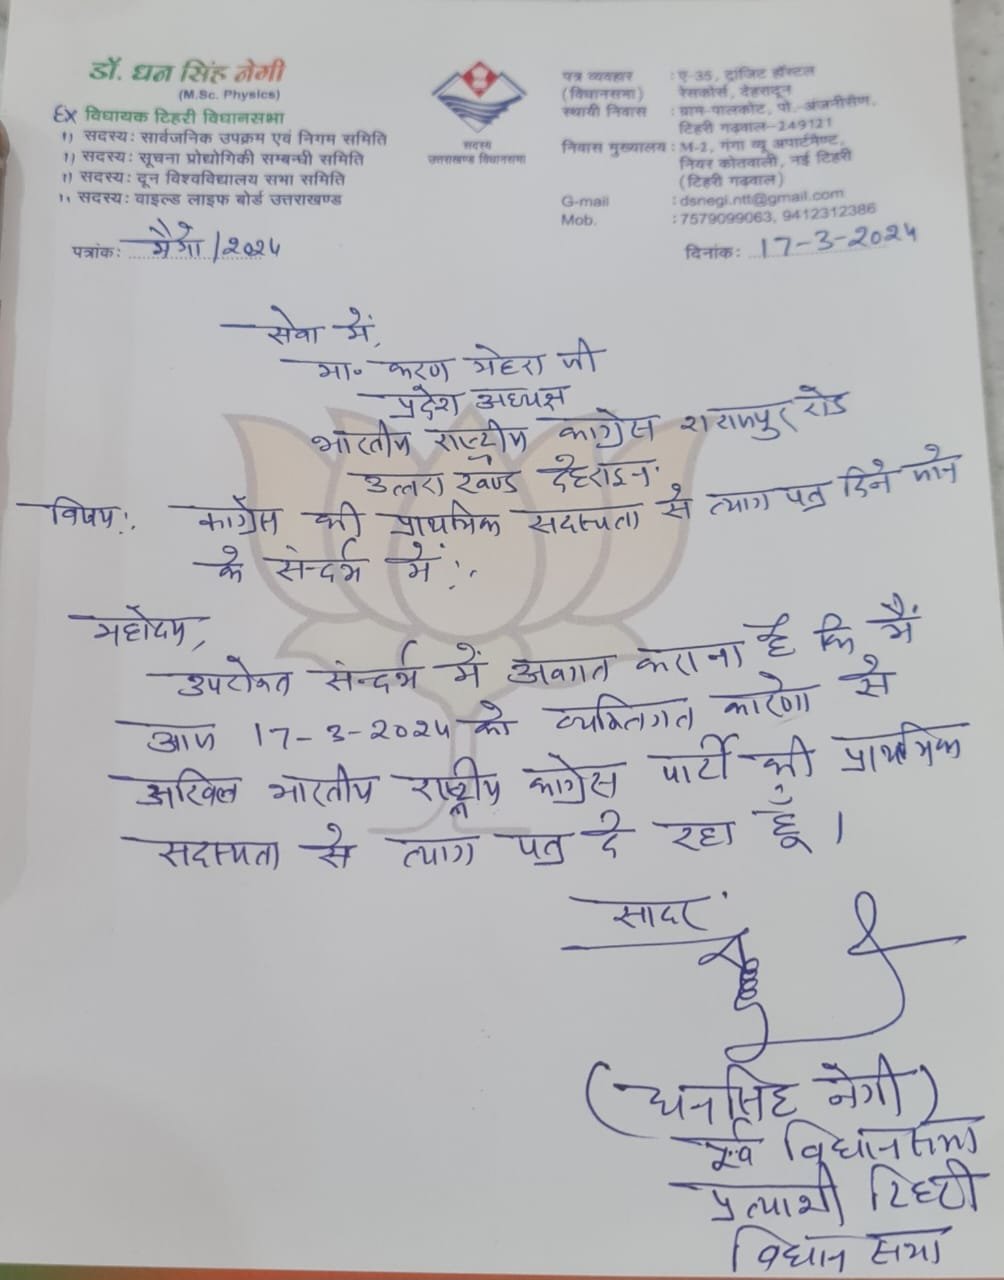 डॉ. धन सिंह नेगी
(M.Sc. Physics)
EX विधायक टिहरी विधानसभा
'') सदस्य: सार्वजनिक उपक्रम एवं निगम समिति
'') सदस्य: सूचना प्रोद्योगिकी सम्बन्धी समिति
'') सदस्य: दून विश्वविद्यालय सभा समिति
'' सदस्य: वाइल्ड लाइफ बोर्ड उत्तराखण्ड
पत्रांक: /2024
सदस्य
उत्तराखण्ड विधानसभा
पत्र व्यवहार : ए-35, ट्रांजिट हॉस्टल
(विधानसभा) रेसकोर्स, देहरादून
स्थायी निवास : ग्राम-पालकोट, पो.-अंजनीसैण,
टिहरी गढ़वाल-249121
निवास मुख्यालय : M-2, गंगा व्यू अपार्टमेण्ट,
नियर कोतवाली, नई टिहरी
(टिहरी गढ़वाल)
G-mail : dsnegi.ntt@gmail.com
Mob. : 7579099063, 9412312386
दिनांक: 17-3-2024
सेवा में,
मा० करण मेहरा जी
प्रदेश अध्यक्ष
भारतीय राष्ट्रीय कांग्रेस रोड
उत्तरा खण्ड देहरादून
विषय:. कांग्रेस की प्राथमिक सदस्यता से त्याग पत्र दिने जाने
के संन्दर्भ में:.
महोदय,
उपरोक्त संन्दर्भ में अवगत कराना है कि मैं
आज 17-3-2024 को व्यक्तिगत कारणो से
अखिल भारतीय राष्ट्रीय कांग्रेस पार्टी की प्राथमिक
सदस्यता से त्याग पत्र दे रहा हूँ।
सादर
(धनसिंह नेगी)
पूर्व विधानसभा
प्रत्याशी टिहरी
विधान सभा